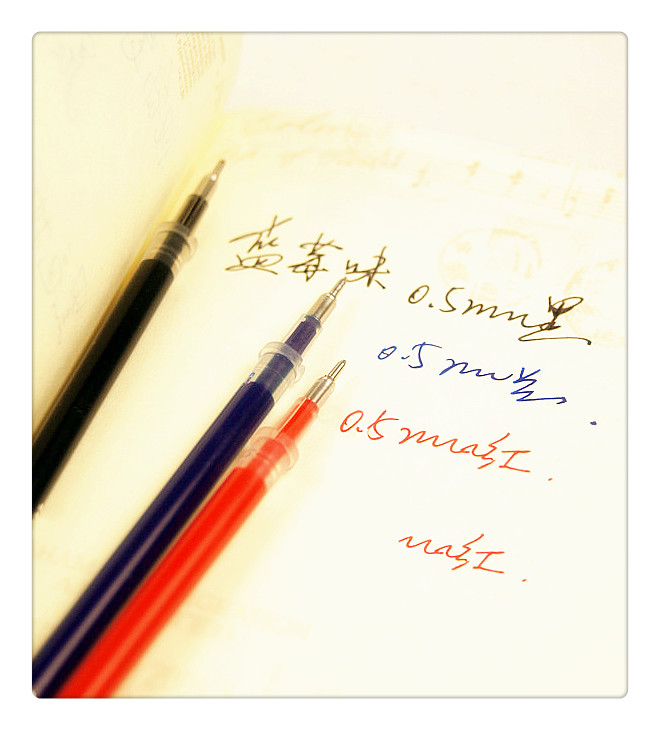 蓝莓味 0.5mm黑
0.5mm
0.5mm红.
m红.